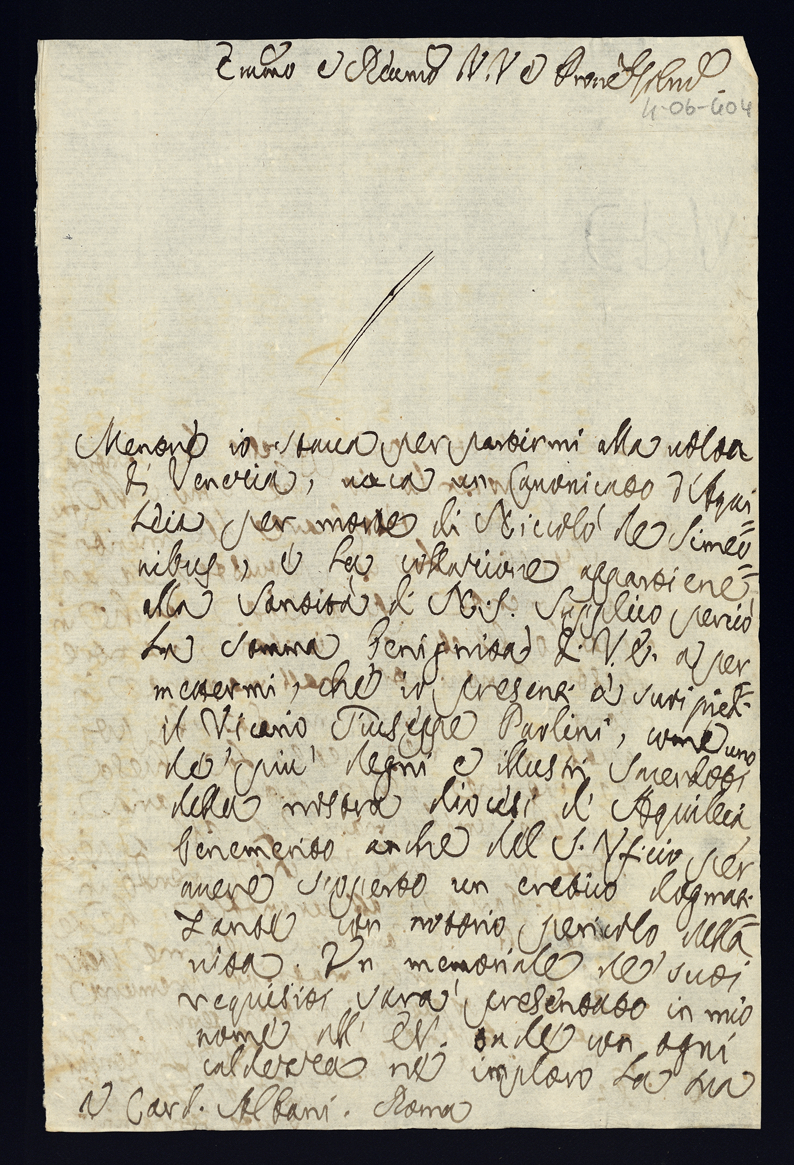 Em̃o e Rev̄mo N.N e Prone
4-06-404
Mentre io stava per partirmi alla volta
di Venezia, vaca un Canonicato d'Aqui=
leia per morte di Niccolò de Simeo=
nibus, e la collazione appartiene
alla Santità di N.S. Supplico perciò
la somma benignità di V.E. a per=
mettermi, che io presenti a' suoi piedi
il Vicario Giuseppe Paolini, come uno
de' più degni e illustri Sacerdoti
della nostra diocesi di Aquileia,
benemerito anche del S. Uficio per
avere scoperto un eretico dogmat=
izante con notorio pericolo della
vita. Un memoriale de' suoi
requisiti sarà presentato in mio
nome all' EV. onde con ogni
caldezza ne imploro la sua
Card. Albani. Roma